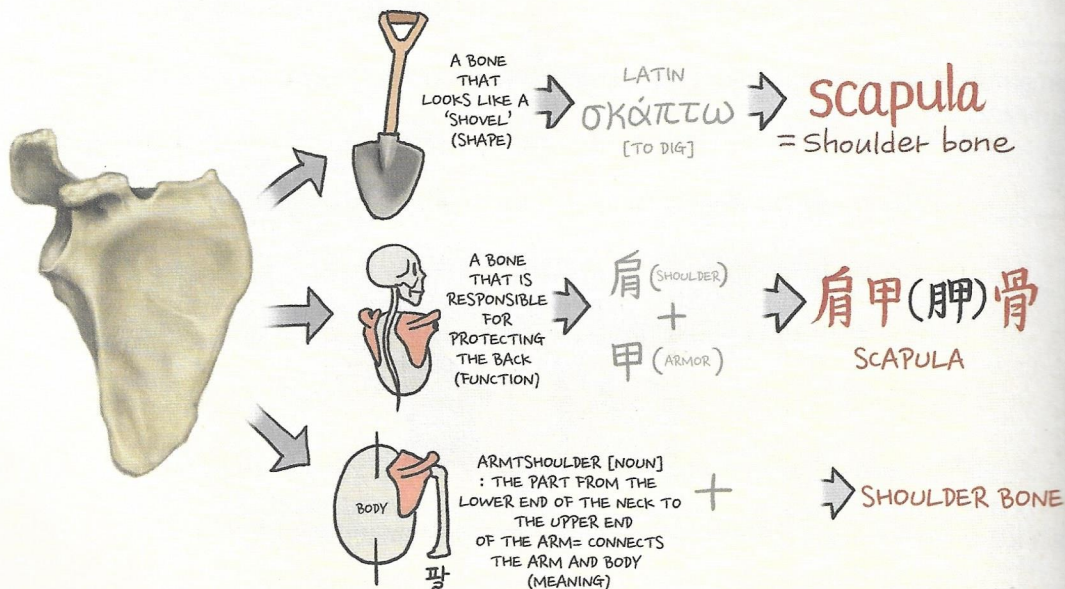 A BONE
THAT
LOOKS LIKE A
'SHOVEL'
(SHAPE)
LATIN
σκάπτω
[TO DIG]
scapula
= Shoulder bone
A BONE
THAT IS
RESPONSIBLE
FOR
PROTECTING
THE BACK
(FUNCTION)
肩 (SHOULDER)
+
甲 (ARMOR)
肩甲(胛)骨
SCAPULA
BODY
팔
ARMTSHOULDER [NOUN]
: THE PART FROM THE
LOWER END OF THE NECK TO
THE UPPER END
OF THE ARM= CONNECTS
THE ARM AND BODY
(MEANING)
+
SHOULDER BONE